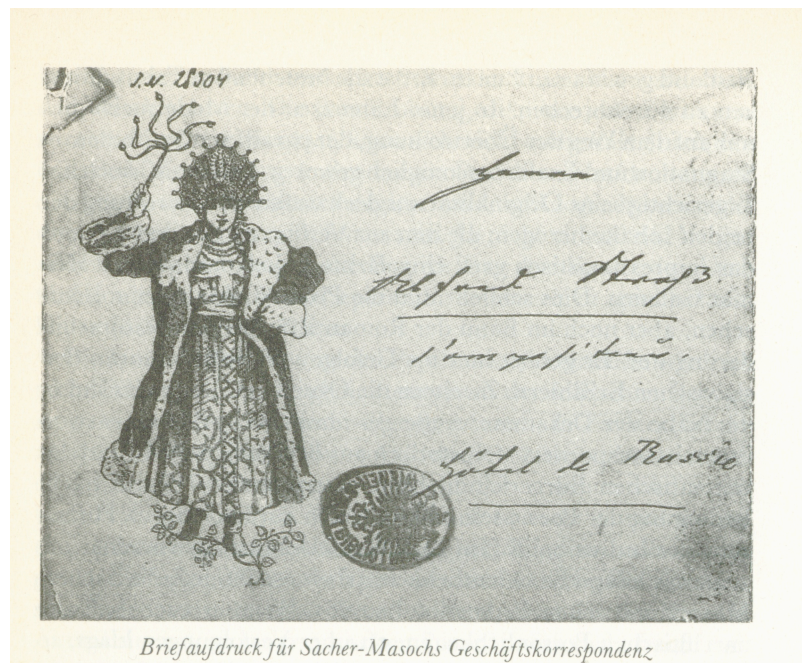 I.N. 28304
Herrn
Alfred Straß.
Compositeur.
Hôtel de Russie
WIENER
Briefaufdruck für Sacher-Masochs Geschäftskorrespondenz